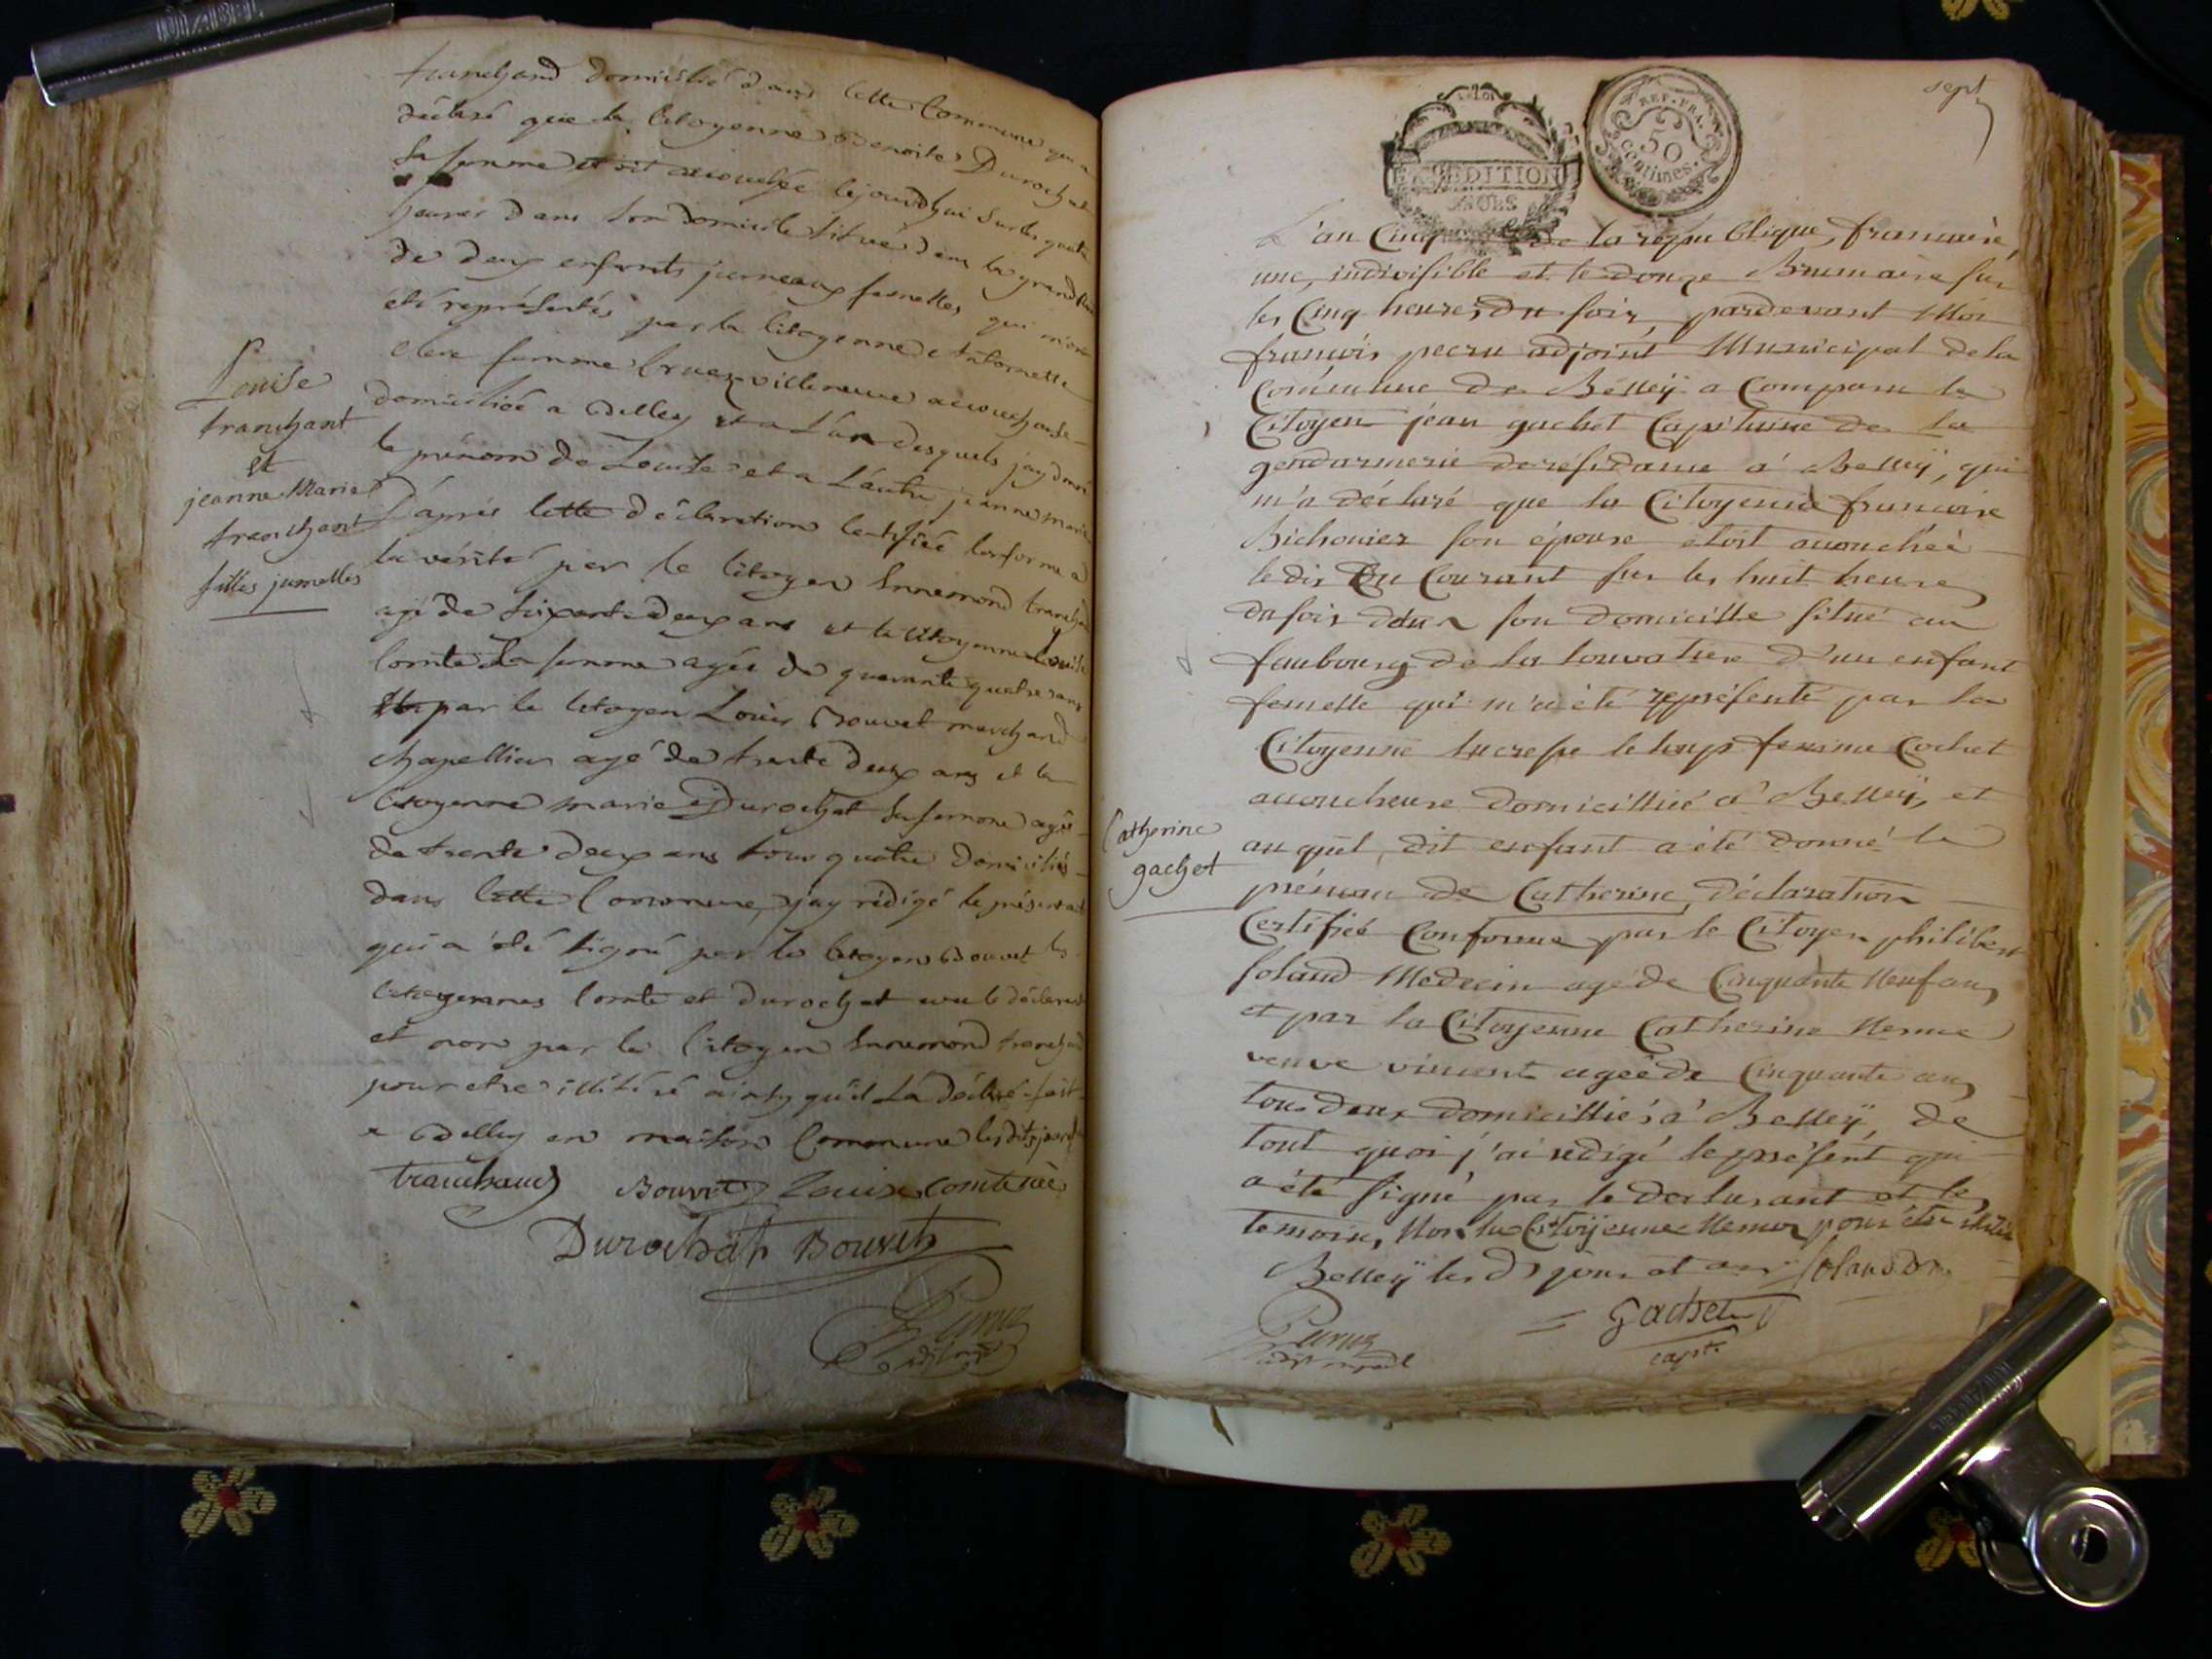 tranchand domicilié dans cette Commune qui a
déclaré que la Citoyenne Benoite Durochat
sa femme etoit accouchée cejourdhui sur les quatre
heures dans son domicile situé dans la grand rue
de deux enfants jumeaux femelles qui m'ont
été représentés par la Citoyenne Antoinette
femme villeneuve accoucheuse
domiciliée a Belley et a L'un desquels jay donné
le prénom de Louise et a L'autre jeanne marie
D'après cette déclaration certifiée conforme a
la vérité par le Citoyen Innemond tranchand
agé de soixante deux ans et la Citoyenne Louise
Comte sa femme agée de quarante quatre ans
par le Citoyen Louis Bouvet marchand
chapellier agé de trente deux ans et la
Citoyenne marie Durochat sa femme agée
de trente deux ans tous quatre domiciliés
dans cette Commune, jay rédigé le présent acte
qui a été signé par le Citoyen Bouvet les
Citoyennes Comte et Durochat avec le déclarant
et non par le Citoyen Innemond tranchand
pour etre illitéré ainsy qu'il L'a déclaré fait
a Belley en maison Commune lesdits jour
tranchand Bouvet Louise comte née
Durochat Bouvet
Louise
tranchant
et
jeanne Marie
tranchant
filles jumelles
sept
LOI
EXPEDITION
REP. FRA.
50
centimes.
L'an Cinq de la république francaise,
une, indivisible et le douze Brumaire sur
les Cinq heures du soir, pardevant Moi
francois pecru adjoint Municipal de la
Commune de Belleÿ a Comparu le
Citoyen jean gachet Capitaine de la
gendarmerie de résidance a Belleÿ, qui
m'a déclaré que la Citoyenne francoise
Bichonier son épouse étoit accouchée
le dix du Courant sur les huit heures
du soir dans son domicille situé au
faubourg de la d'un enfant
femelle qui m'a été représenté par la
Citoyenne femme Cochet
accoucheuse domicilliée a Belleÿ, et
au quel dit enfant a été donné le
prénom de Catherine, déclaration
Certifiée Conforme par le Citoyen philibert
soland Medecin agé de Cinquante Neuf ans
et par la Citoyenne Catherine
veuve vincent agée de Cinquante ans
tous deux domicilliés a Belleÿ, de
tout quoi j'ai redigé le présent qui
a été signé par le declarant et les
temoins, Non la Citoÿenne pour être
Belleÿ lesd jour et an
Gachet
capt.
Catherine
gachet